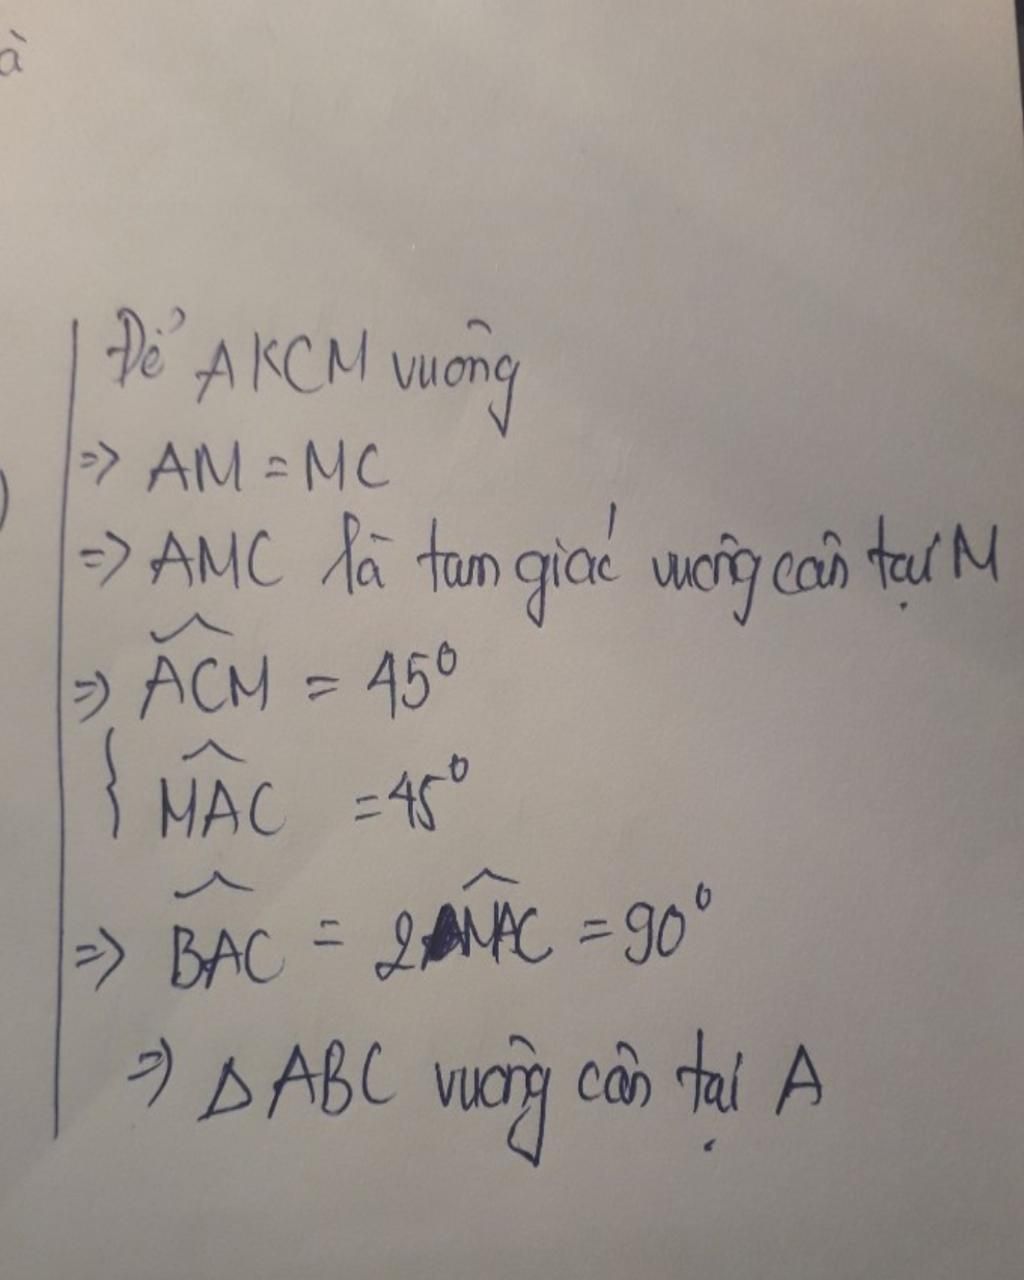 à
Để AKCM vuông
=> AM = MC
=> AMC là tam giác vuông cân tại M
=> \widehat{ACM} = 45⁰
{ \widehat{MAC} = 45⁰
=> \widehat{BAC} = 2\widehat{MAC} = 90⁰
=> Δ ABC vuông cân tại A